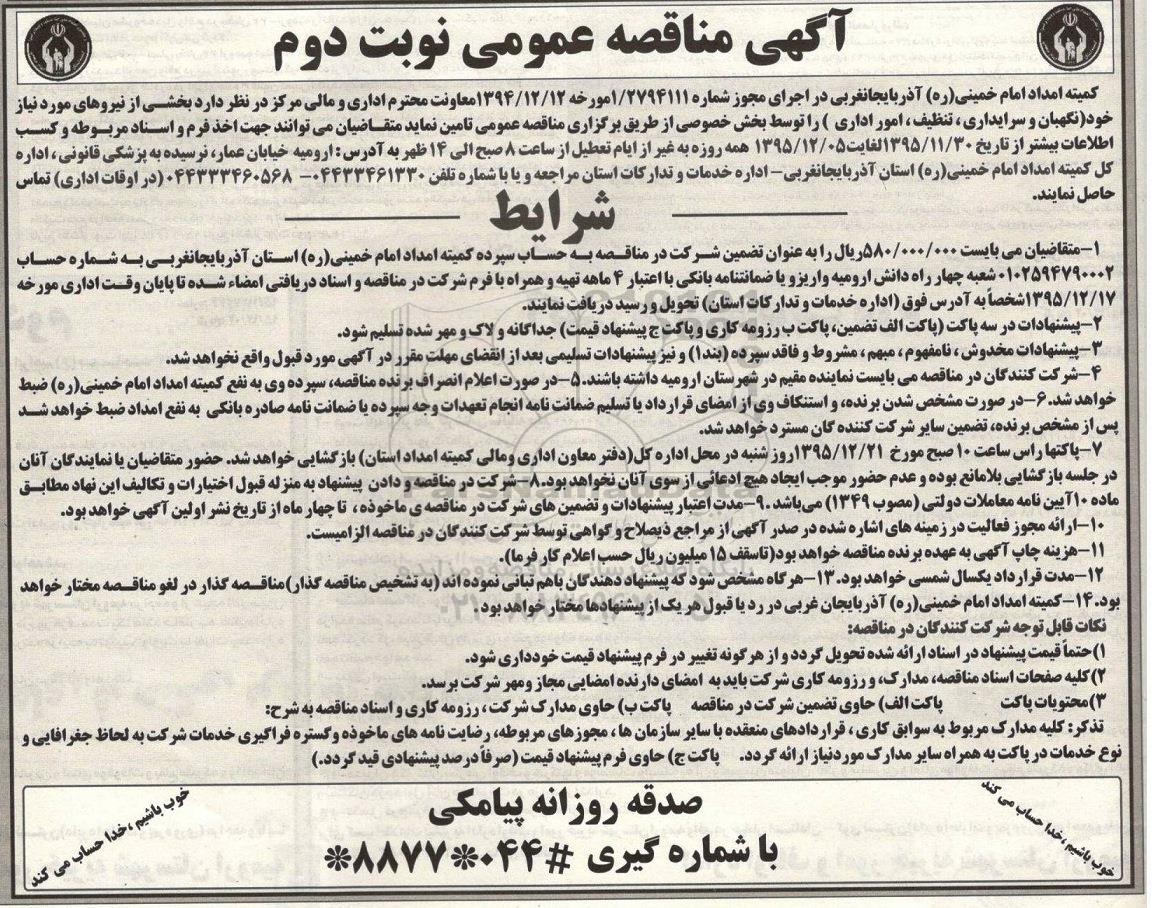 آگهی مناقصه عمومی نوبت دوم
کمیته امداد امام خمینی(ره) آذربایجانغربی در اجرای مجوز شماره ۱/۲۷۹۴۱۱۱مورخه ۱۳۹۴/۱۲/۱۲معاونت محترم اداری و مالی مرکز در نظر دارد بخشی از نیروهای مورد نیاز
خود(نگهبان و سرایداری ، تنظیف ، امور اداری ) را توسط بخش خصوصی از طریق برگزاری مناقصه عمومی تامین نماید متقاضیان می توانند جهت اخذ فرم و اسناد مربوطه و کسب
اطلاعات بیشتر از تاریخ ۱۳۹۵/۱۱/۳۰لغایت۱۳۹۵/۱۲/۰۵ همه روزه به غیر از ایام تعطیل از ساعت ۸ صبح الی ۱۴ ظهر به آدرس : ارومیه خیابان عمار، نرسیده به پزشکی قانونی ، اداره
کل کمیته امداد امام خمینی(ره) استان آذربایجانغربی– اداره خدمات و تدارکات استان مراجعه و یا با شماره تلفن ۰۴۴۳۳۴۶۱۳۳۰– ۰۴۴۳۳۳۴۶۰۵۶۸(در اوقات اداری) تماس
حاصل نمایند.
شرایط
۱–متقاضیان می بایست ۵۸۰/۰۰۰/۰۰۰ریال را به عنوان تضمین شرکت در مناقصه به حساب سپرده کمیته امداد امام خمینی(ره) استان آذربایجانغربی به شماره حساب
۰۱۰۲۵۹۴۷۹۰۰۰۲ شعبه چهار راه دانش ارومیه واریز و یا ضمانتنامه بانکی با اعتبار ۴ ماهه تهیه و همراه با فرم شرکت در مناقصه و اسناد دریافتی امضاء شده تا پایان وقت اداری مورخه
۱۳۹۵/۱۲/۱۷شخصاً به آدرس فوق (اداره خدمات و تدارکات استان) تحویل و رسید دریافت نمایند.
۲–پیشنهادات در سه پاکت (پاکت الف تضمین، پاکت ب رزومه کاری و پاکت ج پیشنهاد قیمت) جداگانه و لاک و مهر شده تسلیم شود.
۳–پیشنهادات مخدوش ، نامفهوم ، مبهم ، مشروط و فاقد سپرده (بند۱) و نیز پیشنهادات تسلیمی بعد از انقضای مهلت مقرر در آگهی مورد قبول واقع نخواهد شد.
۴–شرکت کنندگان در مناقصه می بایست نماینده مقیم در شهرستان ارومیه داشته باشند.۵–در صورت اعلام انصراف برنده مناقصه، سپرده وی به نفع کمیته امداد امام خمینی(ره) ضبط
خواهد شد.۶–در صورت مشخص شدن برنده، و استنکاف وی از امضای قرارداد یا تسلیم ضمانت نامه انجام تعهدات وجه سپرده یا ضمانت نامه صادره بانکی به نفع امداد ضبط خواهد شد
پس از مشخص برنده، تضمین سایر شرکت کننده گان مسترد خواهد شد.
۷–پاکتها راس ساعت ۱۰ صبح مورخ ۱۳۹۵/۱۲/۲۱روز شنبه در محل اداره کل(دفتر معاون اداری ومالی کمیته امداد استان) بازگشایی خواهد شد. حضور متقاضیان یا نمایندگان آنان
در جلسه بازگشایی بلامانع بوده و عدم حضور موجب ایجاد هیچ ادعائی از سوی آنان نخواهد بود.۸–شرکت در مناقصه و دادن پیشنهاد به منزله قبول اختیارات و تکالیف این نهاد مطابق
ماده ۱۰آیین نامه معاملات دولتی (مصوب ۱۳۴۹) می‌باشد.۹–مدت اعتبار پیشنهادات و تضمین های شرکت در مناقصه ی ماخوذه ، تا چهار ماه از تاریخ نشر اولین آگهی خواهد بود.
۱۰–ارائه مجوز فعالیت در زمینه های اشاره شده در صدر آگهی از مراجع ذیصلاح و گواهی توسط شرکت کنندگان در مناقصه الزامیست.
۱۱–هزینه چاپ آگهی به عهده برنده مناقصه خواهد بود(تاسقف ۱۵ میلیون ریال حسب اعلام کار فرما).
۱۲–مدت قرارداد یکسال شمسی خواهد بود.۱۳–هرگاه مشخص شود که پیشنهاد دهندگان باهم تبانی نموده اند (به تشخیص مناقصه گذار)مناقصه گذار در لغو مناقصه مختار خواهد
بود.۱۴–کمیته امداد امام خمینی(ره) آذربایجان غربی در رد یا قبول هر یک از پیشنهادها مختار خواهد بود .
نکات قابل توجه شرکت کنندگان در مناقصه:
۱)حتماً قیمت پیشنهاد در اسناد ارائه شده تحویل گردد و از هرگونه تغییر در فرم پیشنهاد قیمت خودداری شود.
۲)کلیه صفحات اسناد مناقصه، مدارک، و رزومه کاری شرکت باید به امضای دارنده امضایی مجاز ومهر شرکت برسد.
۳)محتویات پاکت پاکت الف) حاوی تضمین شرکت در مناقصه پاکت ب) حاوی مدارک شرکت ، رزومه کاری و اسناد مناقصه به شرح:
تذکر: کلیه مدارک مربوط به سوابق کاری ، قراردادهای منعقده با سایر سازمان ها ، مجوزهای مربوطه، رضایت نامه های ماخوذه وگستره فراگیری خدمات شرکت به لحاظ جغرافیایی و
نوع خدمات در پاکت به همراه سایر مدارک موردنیاز ارائه گردد. پاکت ج) حاوی فرم پیشنهاد قیمت (صرفاً درصد پیشنهادی قید گردد.)
خوب باشیم ، خدا حساب می کند
صدقه روزانه پیامکی
با شماره گیری #۰۴۴*۸۸۷۷*
خوب باشیم ، خدا حساب می کند